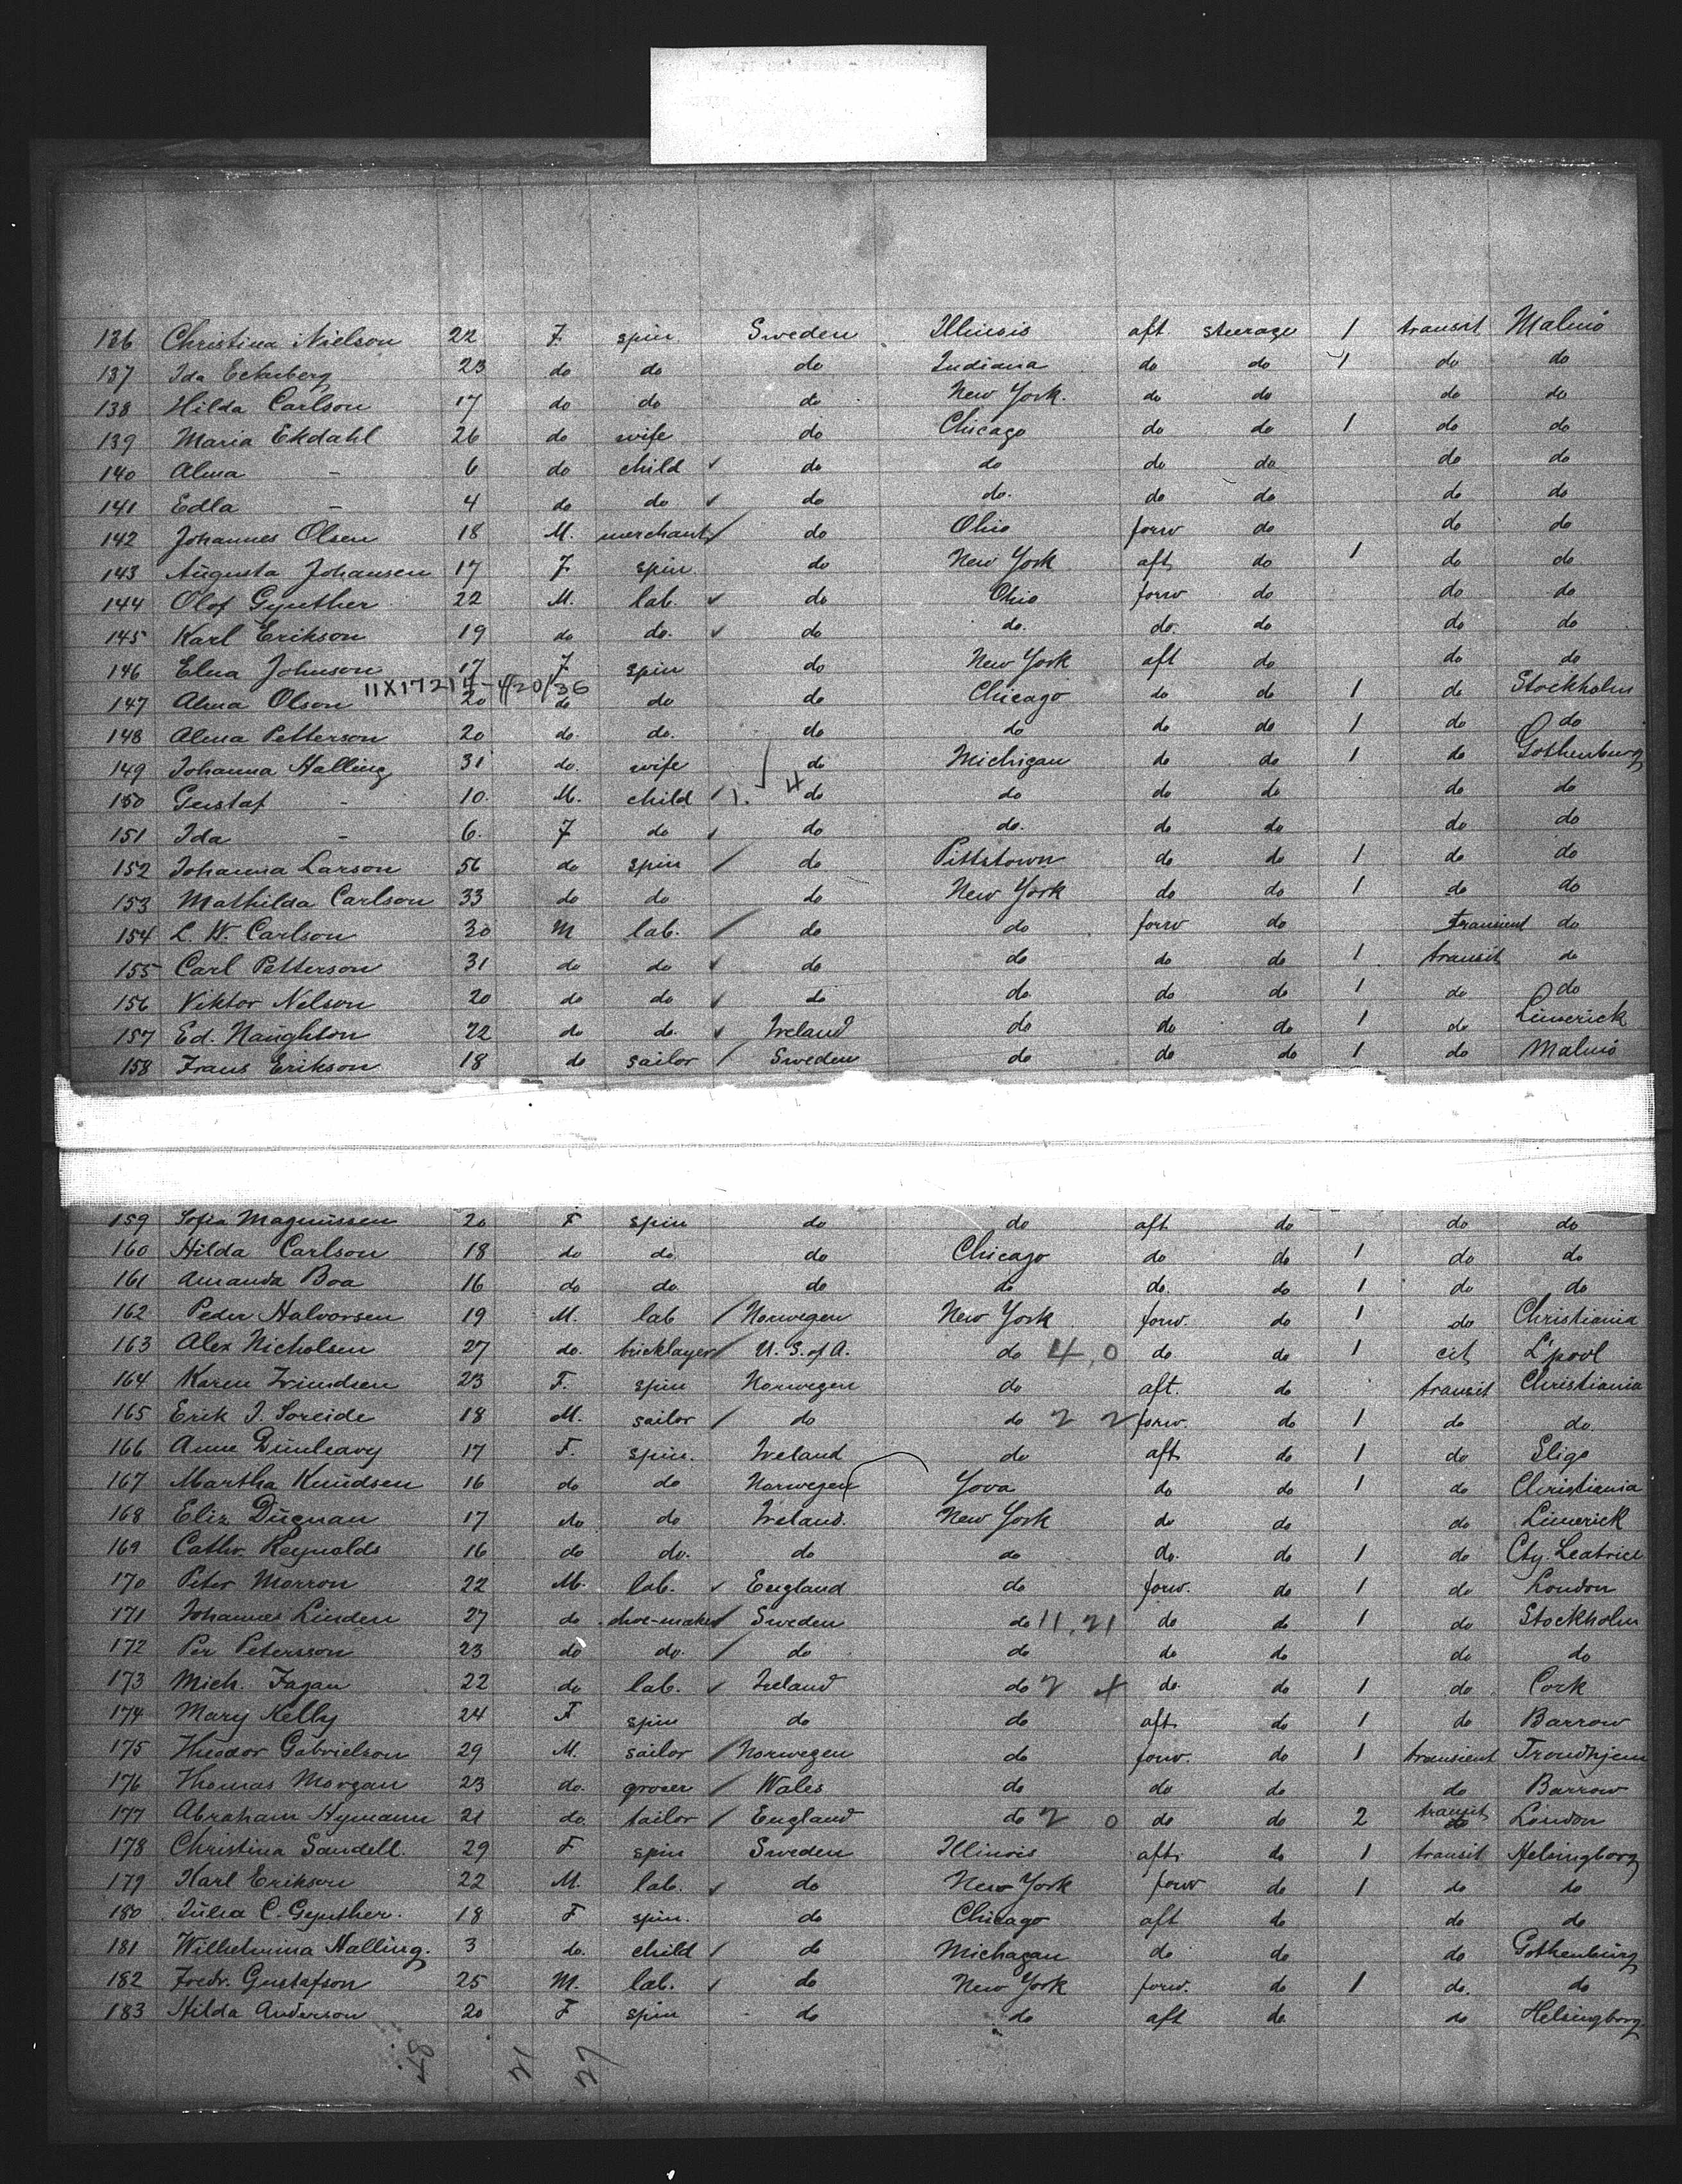 136 Christina Nielson 22 F. spin Sweden Illinois aft steerage 1 transit Malmö
137 Ida Eckeberg 23 do do do Indiana do do 1 do do
138 Hilda Carlson 17 do do do New York. do do do do
139 Maria Ekdahl 26 do wife do Chicago do do 1 do do
140 Alma - 6 do child ✓ do do do do do do
141 Edla - 4 do do ✓ do do. do do do do
142 Johannes Olsen 18 M. merchant / do Ohio forw do do do
143 Augusta Johansen 17 F spin do New York aft do 1 do do
144 Olof Gynther 22 M. lab. ✓ do Ohio forw do do do
145 Karl Erikson 19 do do. ✓ do do. do. do do do
146 Elna Johnson 17 F spin do New York aft do do do
147 Alma Olson 20 do do do Chicago do do 1 do Stockholm
148 Alma Petterson 20 do do. do do do do 1 do do
149 Johanna Halling 31 do. wife do Michigan do do 1 do Gothenburg
150 Gustaf - 10. M. child / 1. 4 do do do do do do
151 Ida - 6. F do ✓ do do. do do do do
152 Johanna Larson 56 do spin / do Pittstown do do 1 do do
153 Mathilda Carlson 33 do do do New York do do 1 do do
154 L. W. Carlson 30 M lab. / do do forw do transient do
155 Carl Petterson 31 do do ✓ do do do do 1 transit do
156 Viktor Nelson 20 do do ✓ do do do do 1 do do
157 Ed. Naughton 22 do do. ✓ Ireland do do do 1 do Limerick
158 Frans Erikson 18 do sailor / Sweden do do do 1 do Malmö
159 Sofia Magnussen 20 F spin do do aft do do do
160 Hilda Carlson 18 do do do Chicago do do 1 do do
161 Amanda Boa 16 do do. do do do. do 1 do do
162 Peder Halvorsen 19 M. lab / Norwegen New York forw. do 1 do Christiania
163 Alex Nicholsen 27 do. bricklayer / U. S. of A. do 4,0 do do 1 cit L'pool
164 Karen 23 F. spin Norwegen do aft. do transit Christiania
165 Erik J. Soreide 18 M. sailor / do do 2 2 forw. do 1 do do.
166 Anne Dunleavy 17 F. spin. Ireland do aft do 1 do Sligo
167 Martha Knudsen 16 do do Norwegen Yova do do 1 do Christiania
168 Eliz Duignan 17 do do Ireland. New York do do do Limerick
169 Cathr. Reynolds 16 do do. do do do. do 1 do Cty.
170 Peter Morron 22 M. lab. ✓ England do forw. do 1 do London
171 Johannes Linden 27 do shoe-maker / Sweden do 11.21 do do 1 do Stockholm
172 Per Petersson 23 do do. / do do do do do do
173 Mich. Fagan 22 do lab. ✓ Ireland do 2 4 do do 1 do Cork
174 Mary Kelly 24 F spin do do aft do 1 do Barrow
175 Theodor Gabrielson 29 M. sailor / Norwegen do forw. do 1 transient Trondhjem
176 Thomas Morgan 23 do. grocer / Wales do do do do Barrow
177 Abraham Hymann 21 do. tailor / England do 2 0 do do 2 transit London
178 Christina Sandell. 29 F spin Sweden Illinois aft do 1 transit Helsingborg
179 Karl Erikson 22 M. lab. ✓ do New York forw do 1 do do
180 Julia C. Gynther. 18 F spin. do Chicago aft do do do
181 Wilhelmina Halling. 3 do. child / do Michagan do do do Gothenburg
182 Fredr. Gustafson 25 M. lab. ✓ do New York forw. do 1 do. do
183 Hilda Anderson 20 F spin do do aft do do Helsingborg
21 27